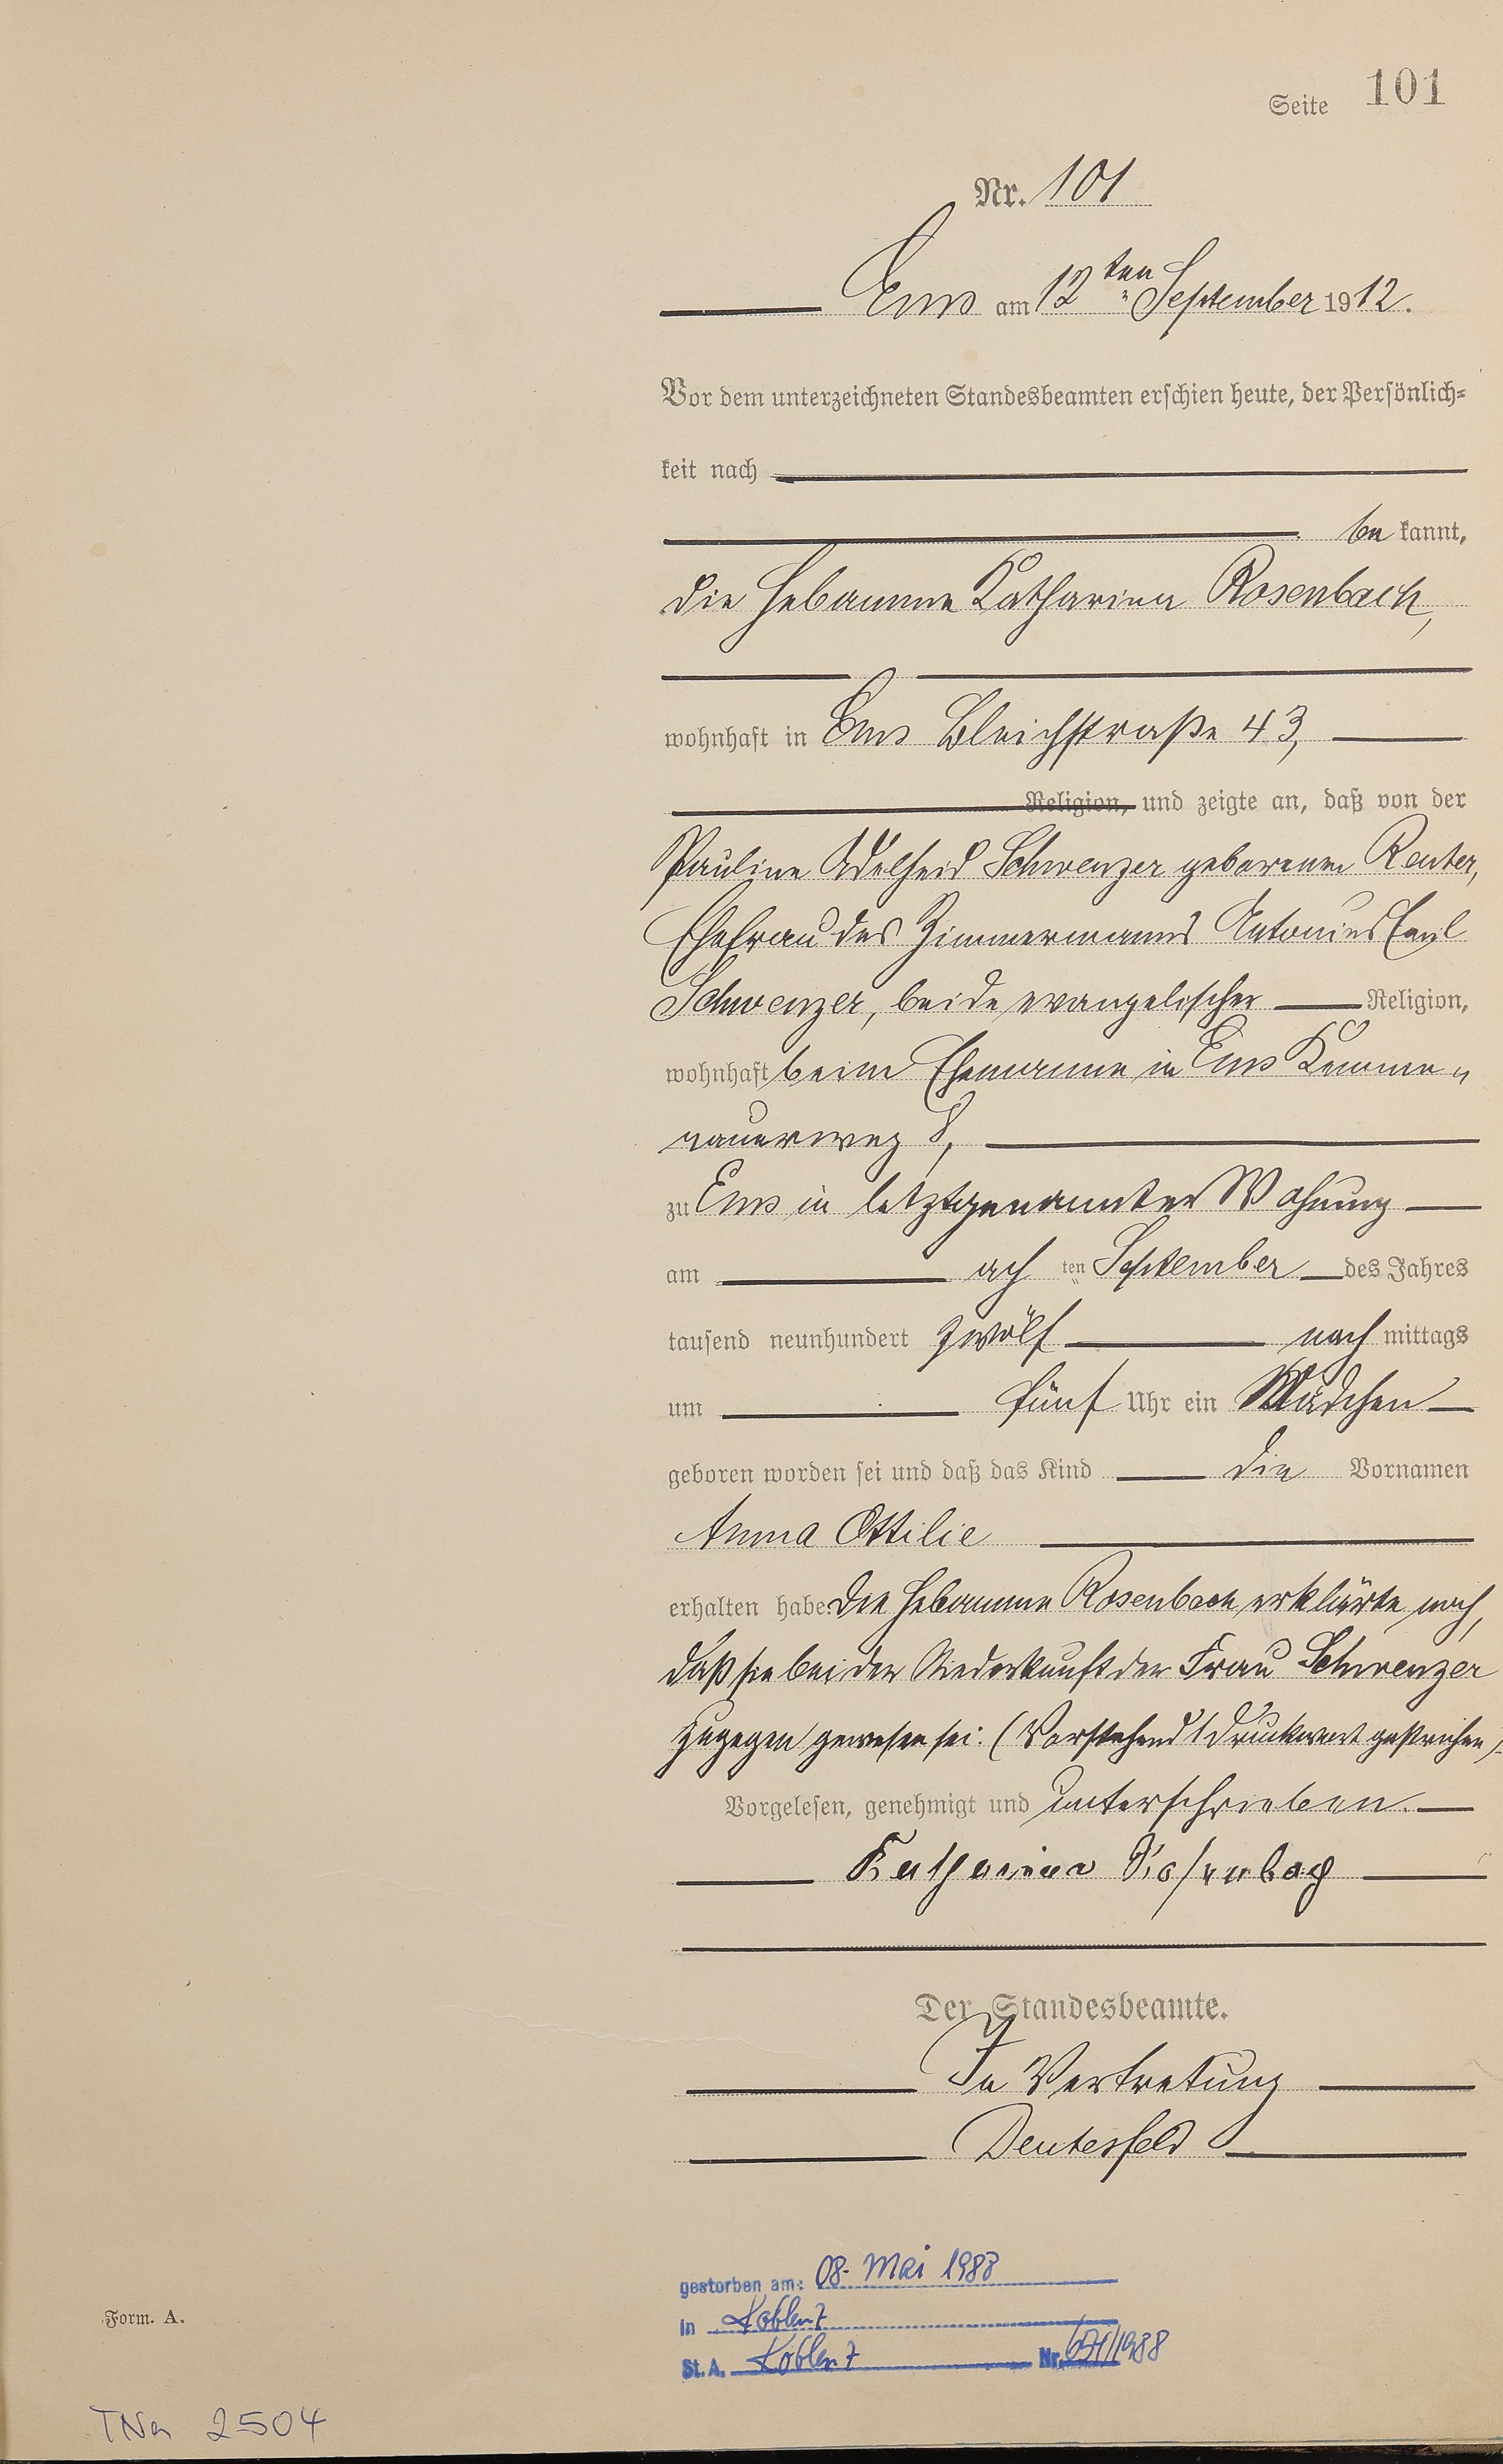 Seite 101
Nr. 101
Ems am 12ten September 1912.
Vor dem unterzeichneten Standesbeamten erschien heute, der Persönlich-
keit nach
be kannt,
die Hebamme Katharina Rosenbach,
wohnhaft in Ems Bleichstraße 43,
Religion, und zeigte an, daß von der
Pauline Adelheid Schwenzer geborenen Reuter,
Ehefrau des Zimmermanns Antonius Emil
Schwenzer, beide evangelischer Religion,
wohnhaft beim Ehemanne in Ems Kemme„
nauerweg 8,
zu Ems in letztgenannter Wohnung
am ach ten September des Jahres
tausend neunhundert zwölf nach mittags
um fünf Uhr ein Mädchen
geboren worden sei und daß das Kind die Vornamen
Anna Ottilie
erhalten habe. Die Hebamme Rosenbach erklärte noch,
daß sie bei der Niederkunft der Frau Schwenzer
zugegen gewesen sei. (Vorstehend 1 Druckwort gestrichen).
Vorgelesen, genehmigt und unterschrieben.
Katharina Rosenbach
Der Standesbeamte.
In Vertretung
Deutesfeld
gestorben am: 08. Mai 1988
in Koblenz
St. A. Koblenz Nr. /1988
Form. A.
2504